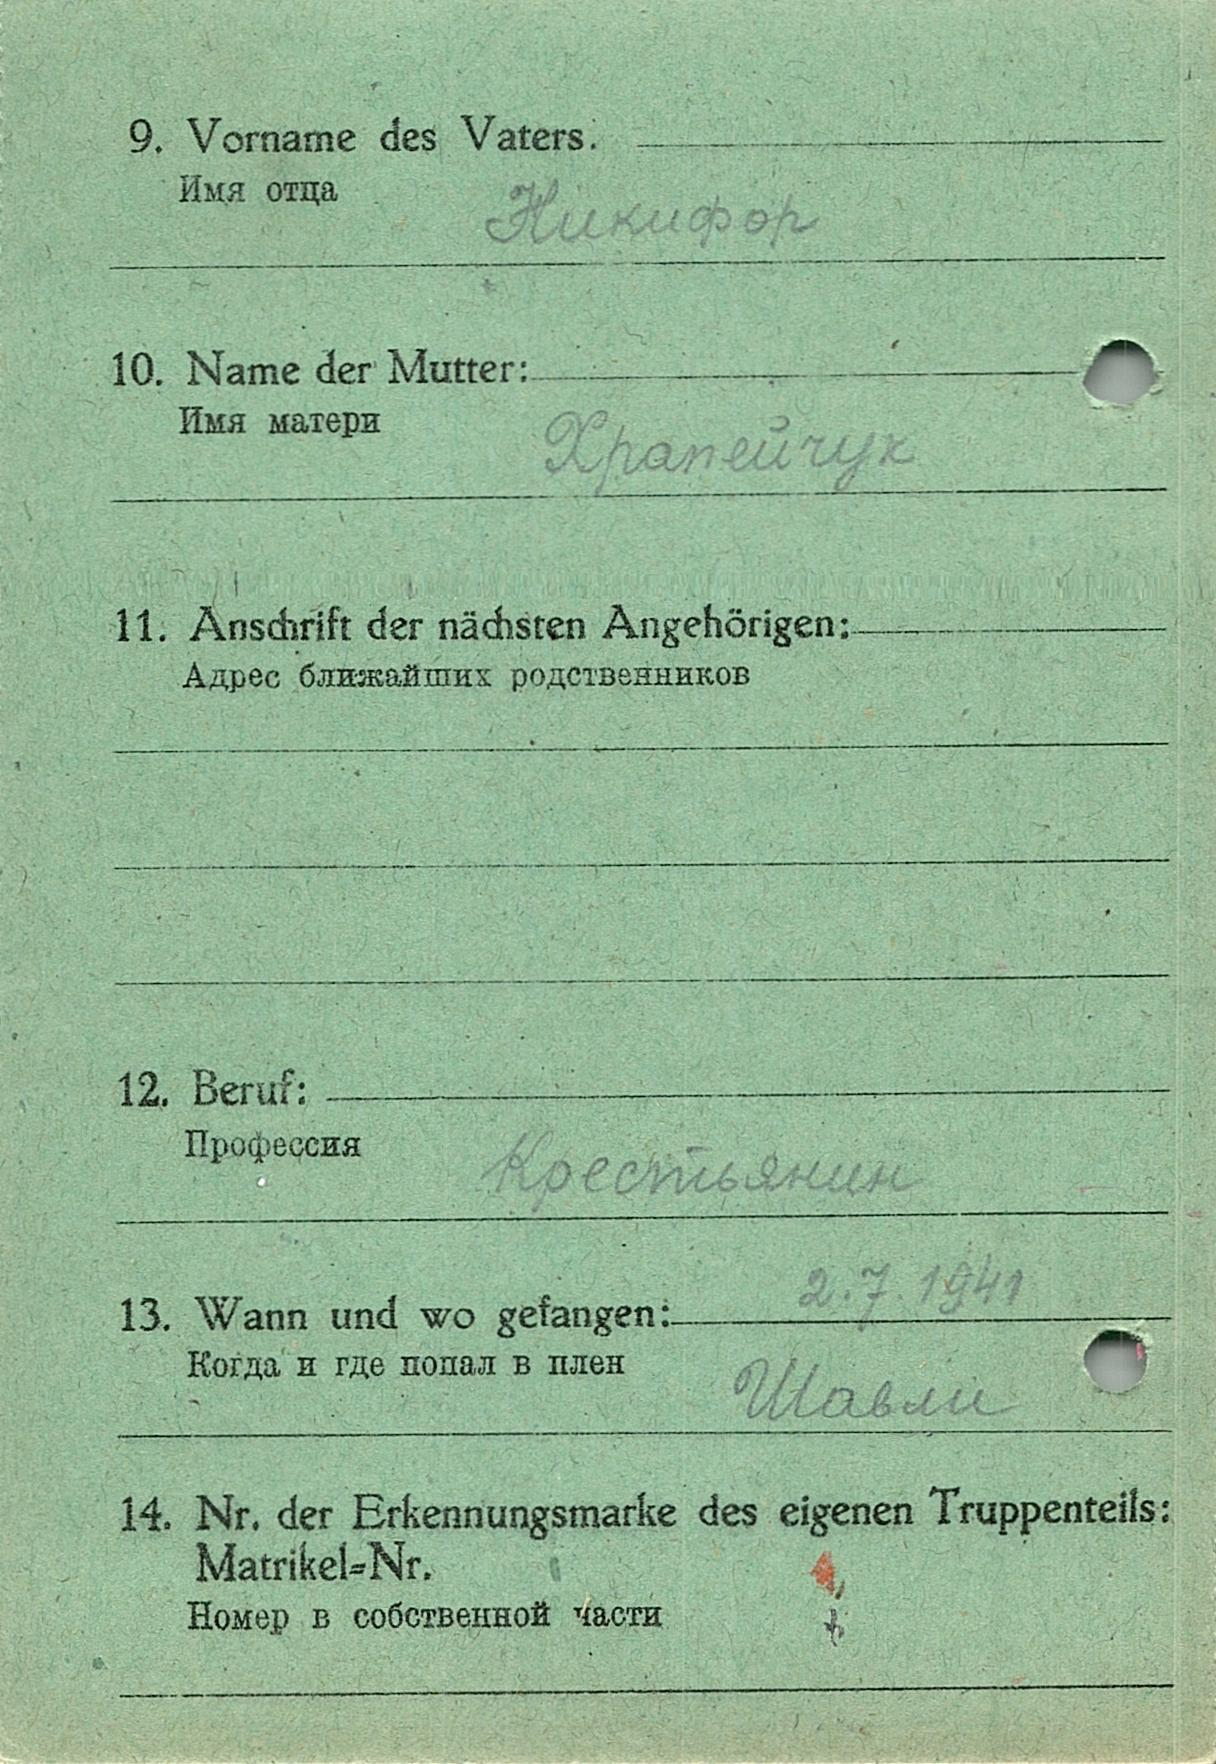 9. Vorname des Vaters.
Имя отца
Никифор
10. Name der Mutter:
Имя матери
Храпейчук
11. Anschrift der nächsten Angehörigen:
Адрес ближайших родственников
12. Beruf:
Профессия
Крестьянин
2.7 1941
13. Wann und wo gefangen:
Когда и где попал в плен
Шавли
14. Nr. der Erkennungsmarke des eigenen Truppenteils:
Matrikel=Nr.
Номер в собственной части